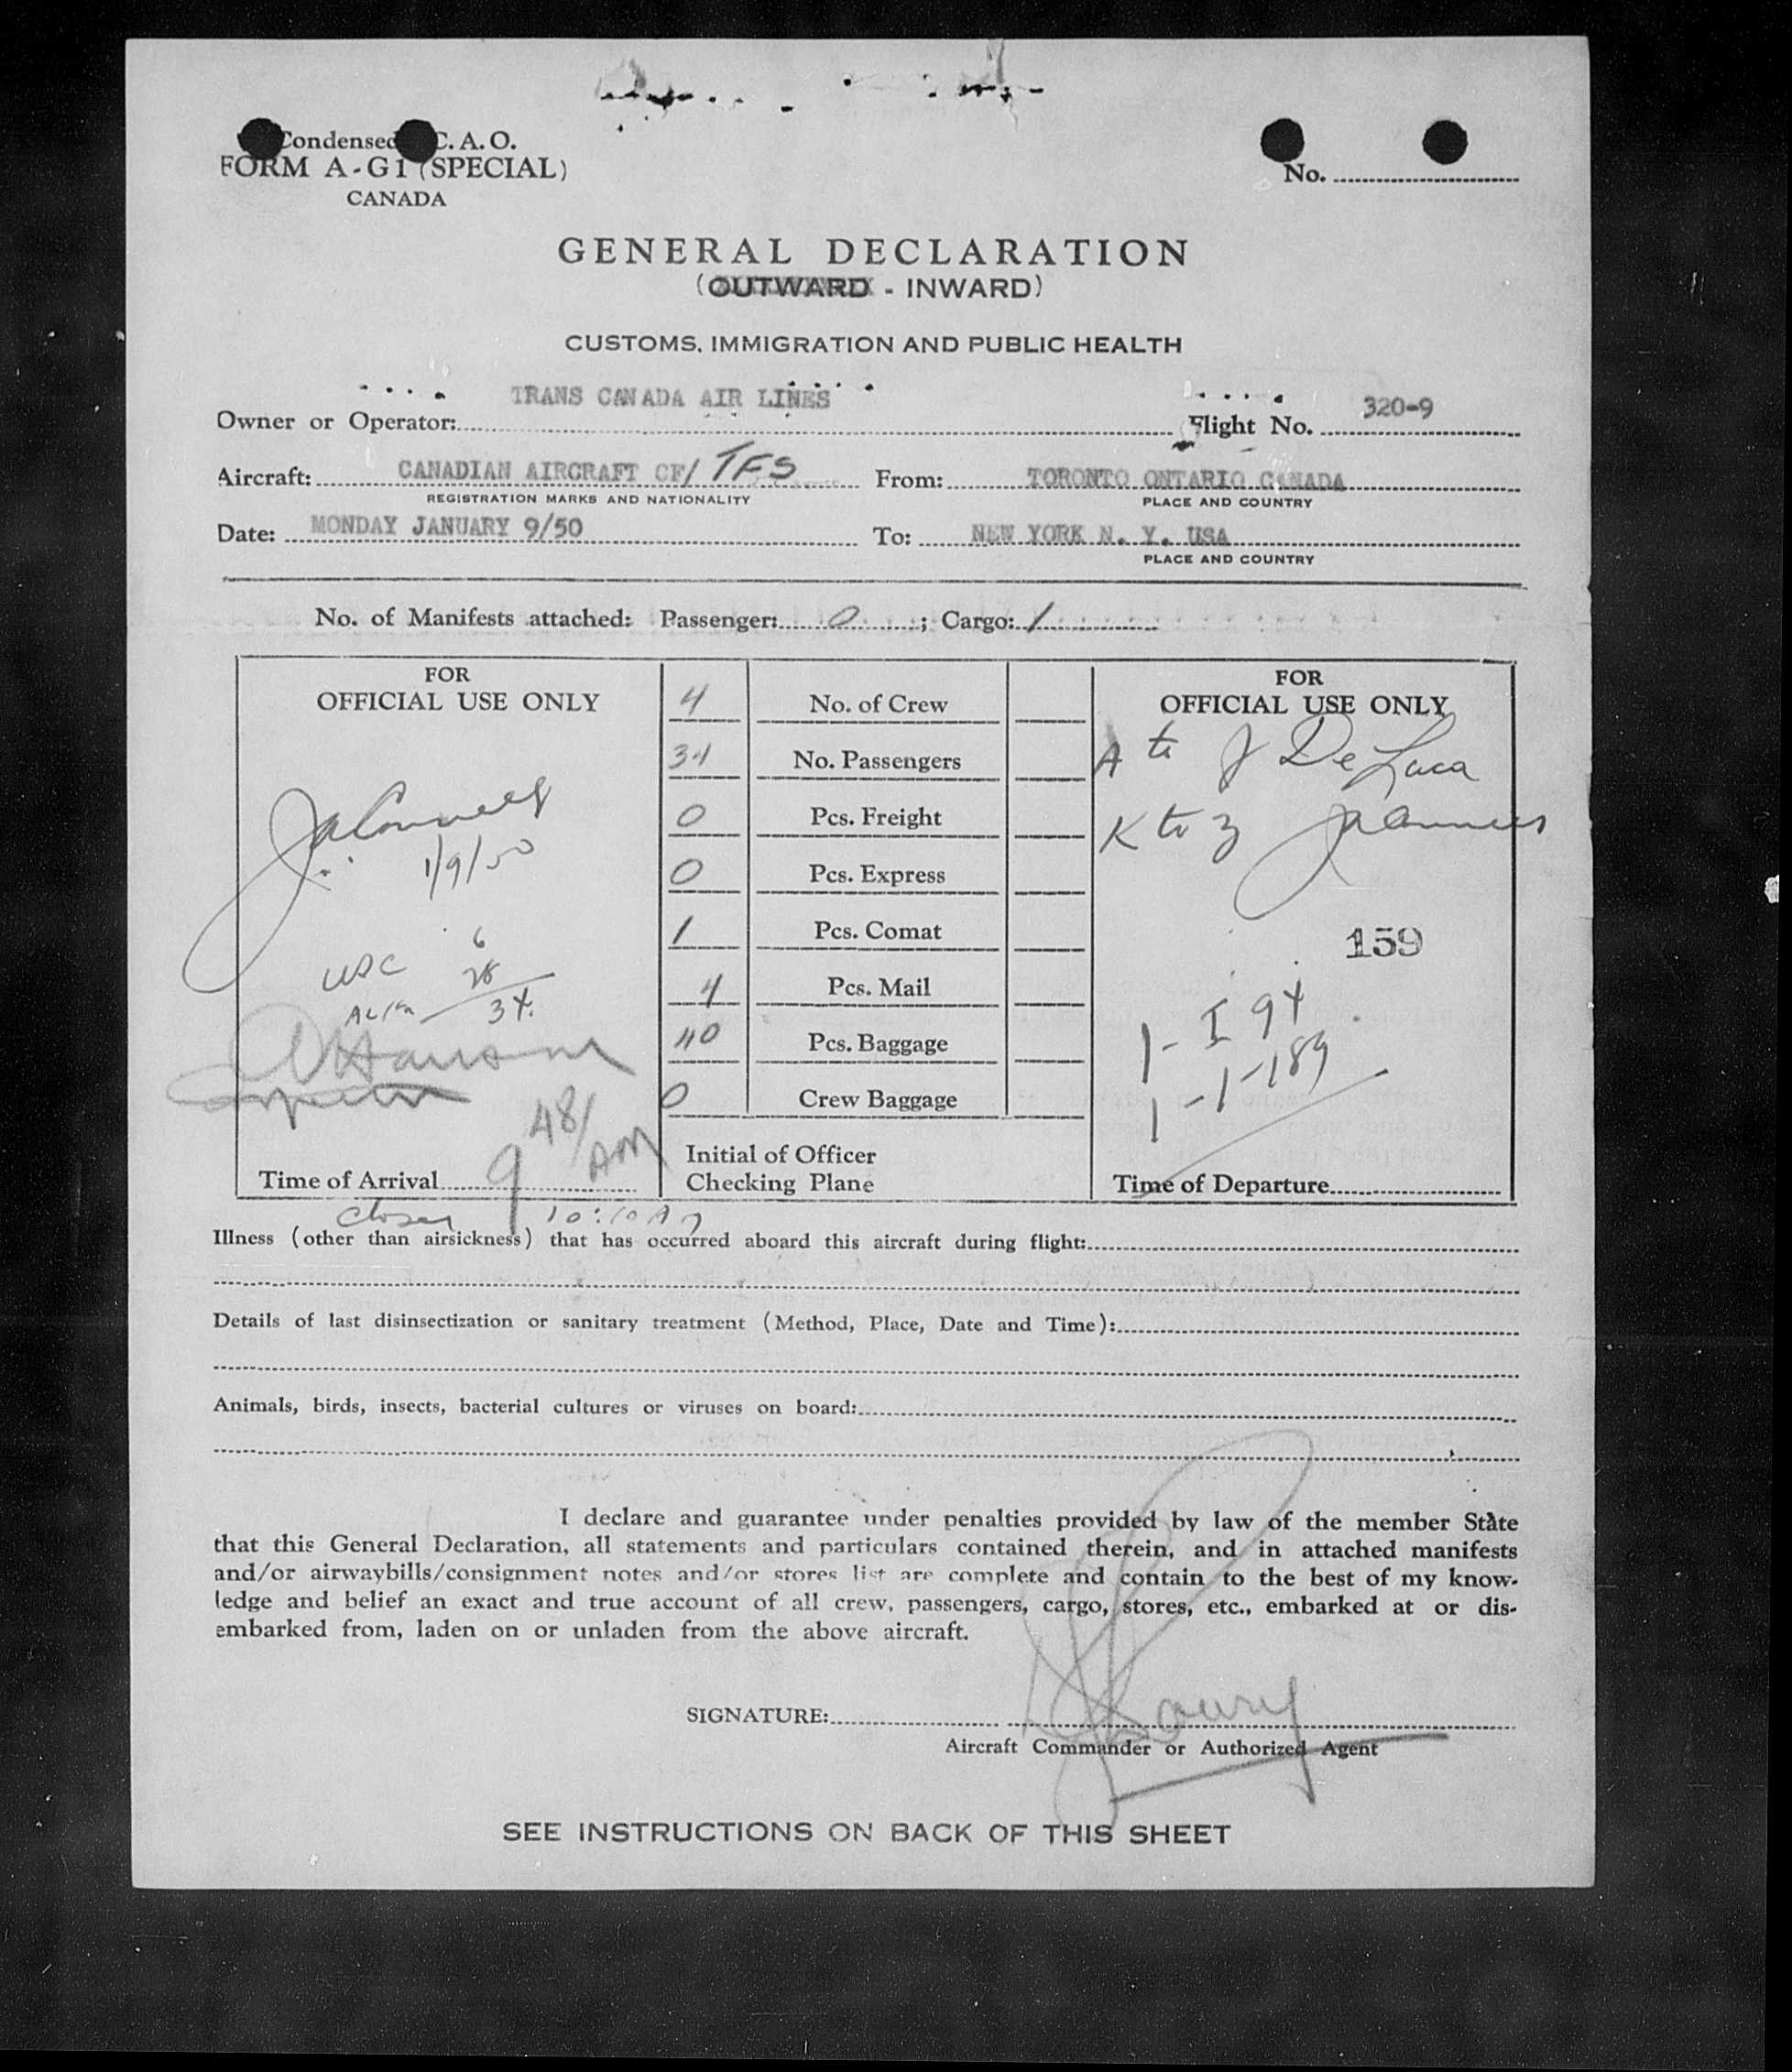 Condensed C. A. O.
FORM A-G1 (SPECIAL)
CANADA
No.
GENERAL DECLARATION
(OUTWARD - INWARD)
CUSTOMS, IMMIGRATION AND PUBLIC HEALTH
Owner or Operator: TRANS CANADA AIR LINES Flight No. 320-9
Aircraft: CANADIAN AIRCRAFT CF/ TFS From: TORONTO ONTARIO CANADA
REGISTRATION MARKS AND NATIONALITY PLACE AND COUNTRY
Date: MONDAY JANUARY 9/50 To: NEW YORK N. Y. USA
PLACE AND COUNTRY
No. of Manifests attached: Passenger: 0 ; Cargo: 1
FOR
OFFICIAL USE ONLY
1/9/50
USC 6
28
34
9 48/ AM
Time of Arrival
4 No. of Crew
34 No. Passengers
0 Pcs. Freight
0 Pcs. Express
1 Pcs. Comat
4 Pcs. Mail
40 Pcs. Baggage
0 Crew Baggage
Initial of Officer
Checking Plane
FOR
OFFICIAL USE ONLY
A to J De Luca
K to Z
159
1 - I 94
1 - 1-189
Time of Departure
closed 10:10 A
Illness (other than airsickness) that has occurred aboard this aircraft during flight:
Details of last disinsectization or sanitary treatment (Method, Place, Date and Time):
Animals, birds, insects, bacterial cultures or viruses on board:
I declare and guarantee under penalties provided by law of the member State
that this General Declaration, all statements and particulars contained therein, and in attached manifests
and/or airwaybills/consignment notes and/or stores list are complete and contain to the best of my know-
ledge and belief an exact and true account of all crew, passengers, cargo, stores, etc., embarked at or dis-
embarked from, laden on or unladen from the above aircraft.
SIGNATURE:
Aircraft Commander or Authorized Agent
SEE INSTRUCTIONS ON BACK OF THIS SHEET